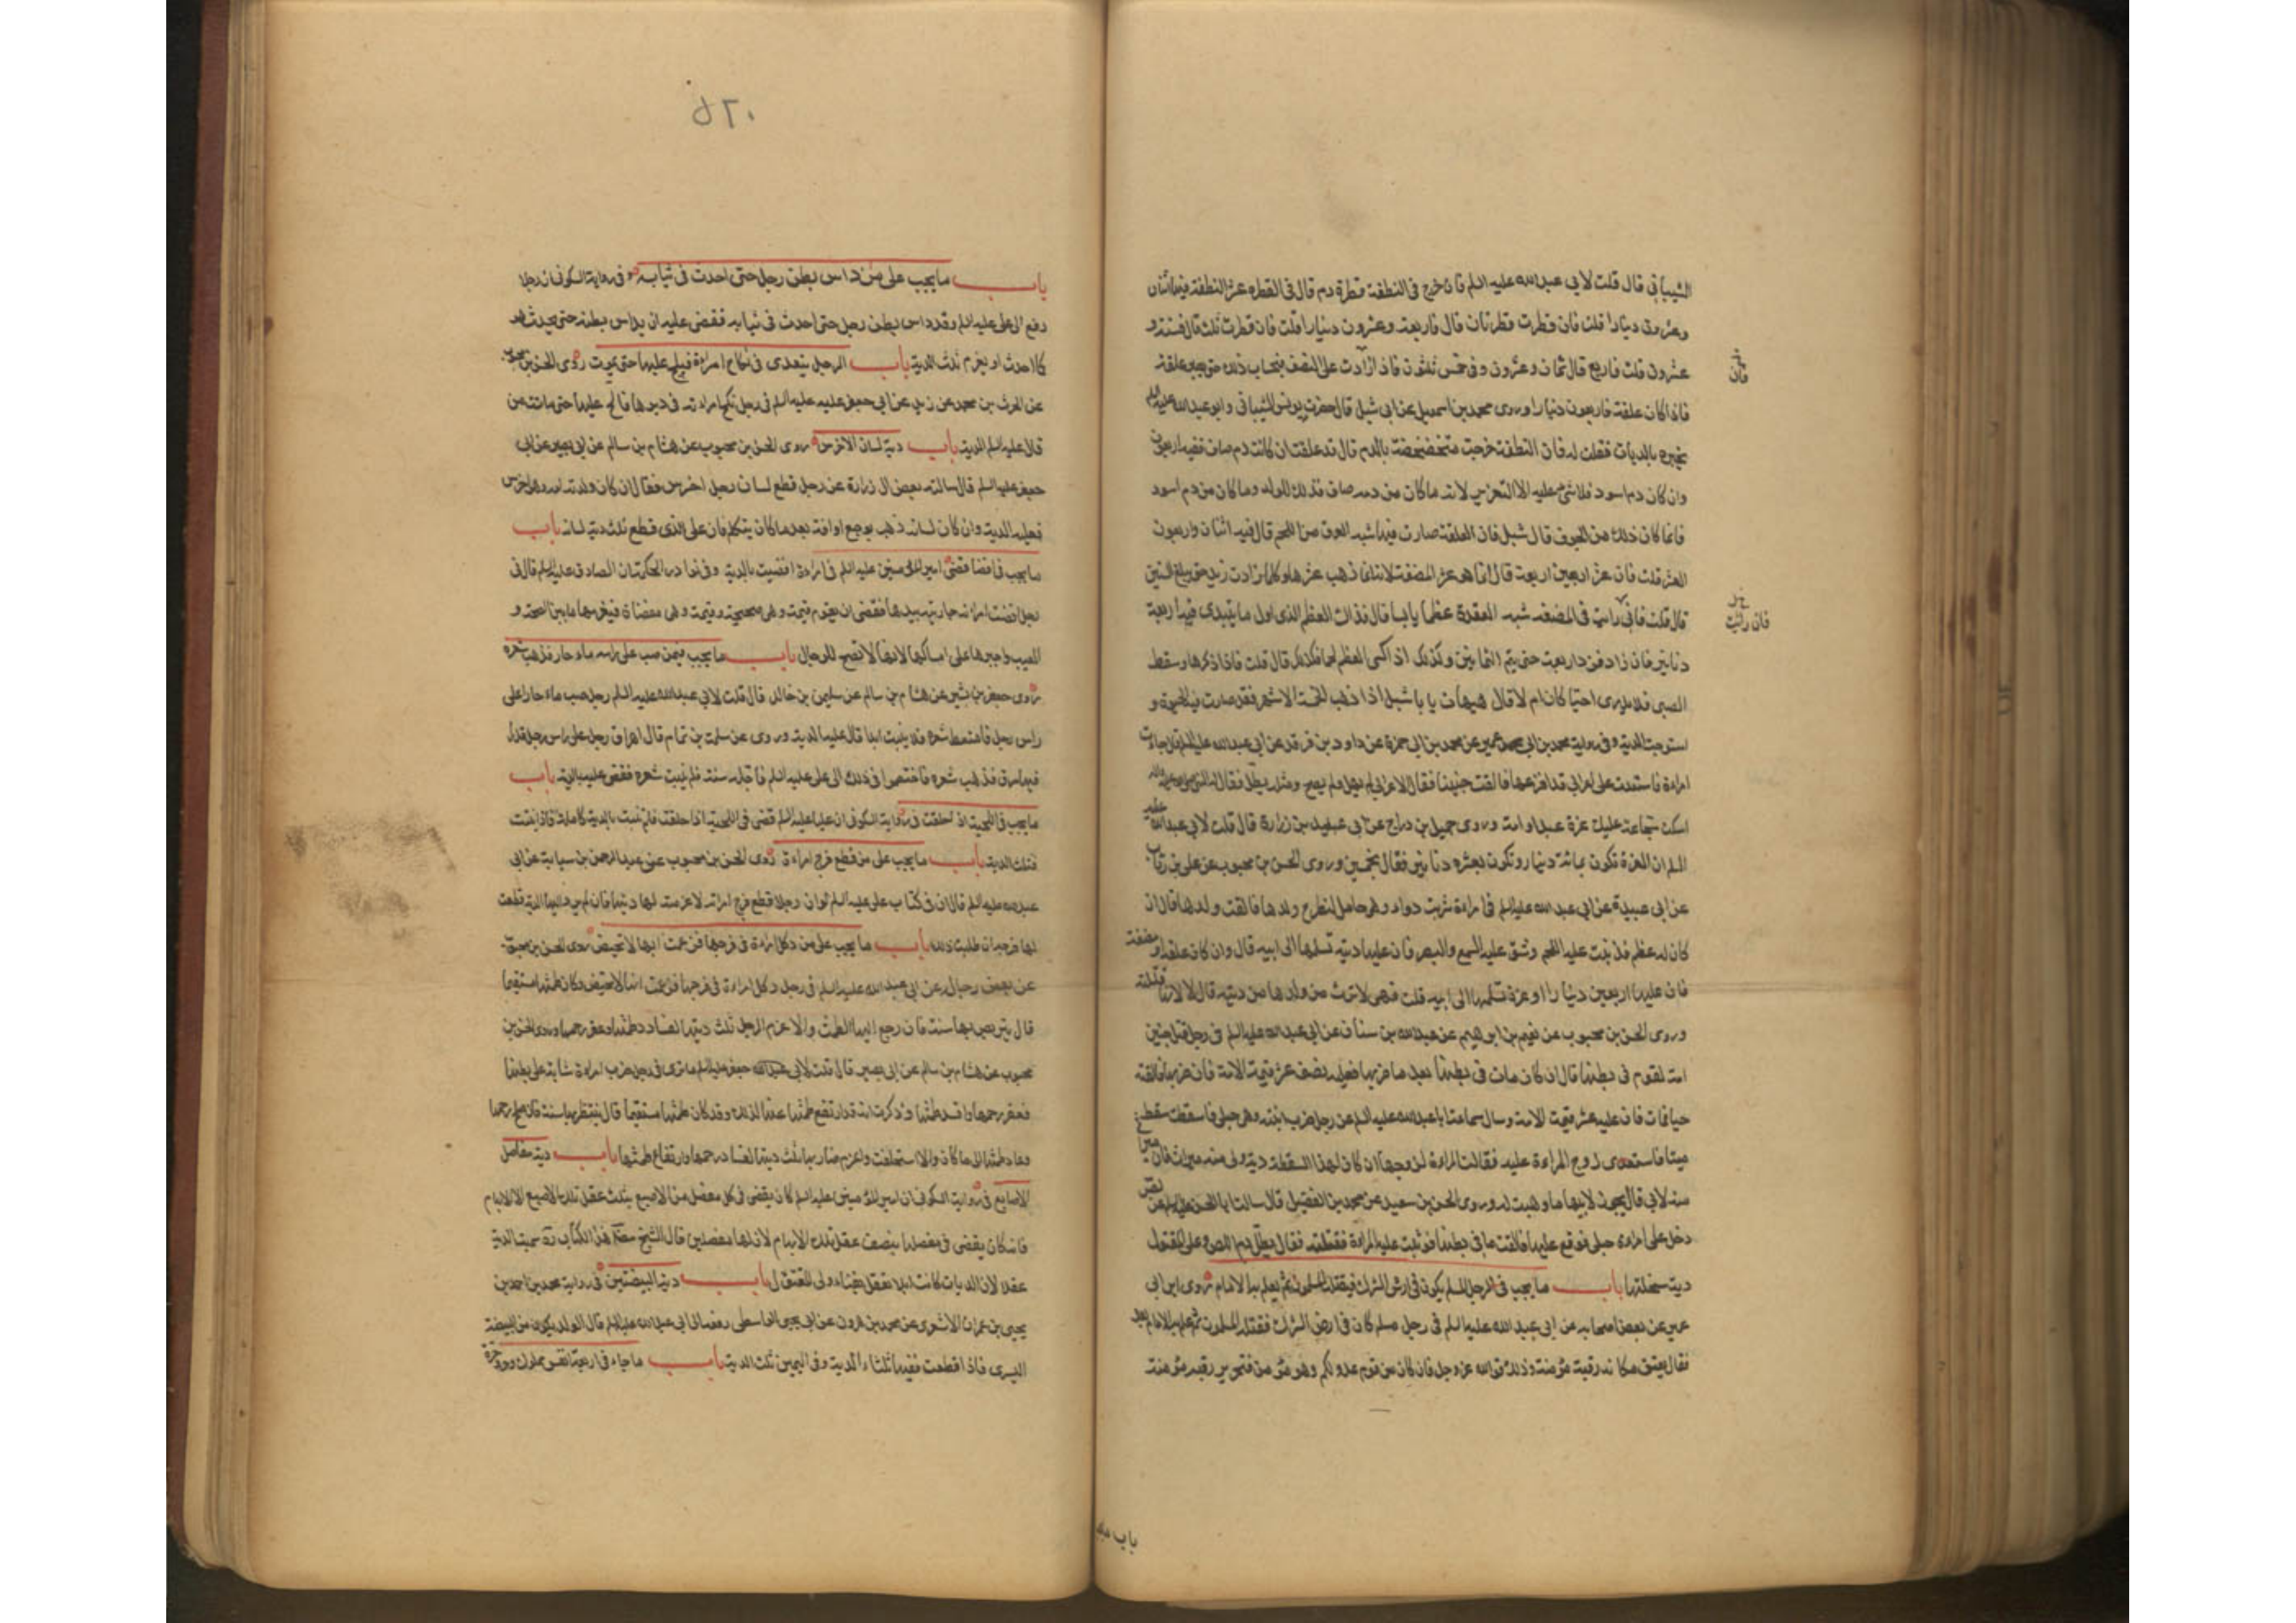 الشيباني قال قلت لابي عبد الله عليه السلم فان خرج في النطفة قطرة دم قال في القطرة عشر النطفة فيها اثنان
وعشرون دينارا قلت فان قطرت قطرتان قال فاربعة وعشرون دينارا قلت فان قطرت ثلث قال فستة و
عشرون قلت فاربع قال ثمان وعشرون وفي خمس ثلثون فاذا زادت على النصف فبحساب ذلك حتى يصير علقة
فان
فاذا كان علقة فاربعون دينارا وروى محمد بن اسمعيل عن ابي شبل قال حضرت يونس الشيباني وابو عبد الله عليه السلم
يخبره بالديات فقلت له فان النطفة خرجت متخضخضة بالدم قال قد علقت ان كانت دم صاف ففيه اربعون
وان كان دم اسود فلا شيء عليه الا التعزير لانه ما كان من دم صاف فذلك للولد وما كان من دم اسود
فانما كان ذلك من الجوف قال شبل فان العلقة صارت فيها شبه العروق من اللحم قال فيه اثنان واربعون
العشر قلت فان عشر اربعين اربعة قال انما هو عشر المضغة لانه انما ذهب عشرها وكلما زادت زيد حتى يبلغ الستين
قال قلت فاني رايت في المضغة شبه العقدة عظما يابسا قال فذاك العظم الذي اول ما يبتدي فيها اربعة
فان رايت
دنانير فان زاد فزد اربعة حتى يتم الثمانين وكذلك اذا كسى العظم لحما فكذلك قال قلت فاذا ذكرها وسقط
الصبي فلا يدرى احيا كان ام لا قال هيهات يا با شبل اذا ذهب الخمسة الاشهر فقد صارت فيه الحيوة و
استوجب الدية وفي رواية محمد بن ابي عمير عن محمد بن ابي حمزة عن داود بن فرقد عن ابي عبد الله عليه السلم قال جاءت
امراءة فاستعدت على اعرابي قد افزعها فالقت جنينا فقال الاعرابي لم يهل ولم يصح ومثله يطل فقال له النبي
اسكت سجاعة عليك غرة عبد او امة وروى جميل بن دراج عن ابي عبيد بن زرارة قال قلت لابي عبد الله عليه
السلم ان الغرة تكون بمائة دينار وتكون بعشرة دنانير فقال بخمسين وروى الحسن بن محبوب عن علي بن رئاب
عن ابي عبيدة عن ابي عبد الله عليه السلم في امراءة شربت دواء وهي حامل لتطرح ولدها فالقت ولدها قال ان
كان له عظم قد نبت عليه اللحم وشق عليه السمع والبصر فان عليها دية تسلمها الى ابيه قال وان كان علقة او مضغة
فان عليها اربعين دينارا او غرة تسلمها الى ابيه قلت فهي لا ترث من ولدها من ديته قال لا لانها قتلته
وروى الحسن بن محبوب عن نعيم بن ابراهيم عن عبد الله بن سنان عن ابي عبد الله عليه السلم في رجل قتل جنين
امة لقوم في بطنها قال ان كان مات في بطنها بعد ما ضربها فعليه نصف عشر قيمة الامة فان ضربها فالقته
حيا فمات فان عليه عشر قيمة الامة وسال سماعة ابا عبد الله عليه السلم عن رجل ضرب ابنته وهي حبلى فاسقطت سقطا
ميتا فاستعدى زوج المراءة عليه فقالت المراءة لزوجها ان كان لهذا السقط دية ولي منه ميراث فان ميراثي
منه لابي قال يجوز لابيها ما وهبت له وروى الحسين بن سعيد عن محمد بن الفضيل قال سالت ابا الحسن عليه السلم عن لص
دخل على امراءة حبلى فوقع عليها فالقت ما في بطنها فوثبت عليه المراءة فقتلته فقال يطل دم اللص وعلى المقتول
دية سخلتها باب ما يجب في الرجل المسلم يكون في ارض الشرك فيقتله المسلمون ثم يعلم به الامام روى ابن ابي
عمير عن بعض اصحابه عن ابي عبد الله عليه السلم في رجل مسلم كان في ارض الشرك فقتله المسلمون ثم علم به الامام بعد
فقال يعتق مكانه رقبة مؤمنة وذلك قول الله عز وجل فان كان من قوم عدو لكم وهو مؤمن فتحرير رقبة مؤمنة
باب ما
٥٢٠
باب ما يجب على من داس بطن رجل حتى احدث في ثيابه وفي رواية السكوني ان رجلا
رفع الى علي عليه السلم وقد داس بطن رجل حتى احدث في ثيابه فقضى عليه ان يداس بطنه حتى يحدث
كما احدث او يغرم ثلث الدية باب الرجل يتعدى في نكاح امراءة فيلح عليها حتى تموت روى الحسن بن محبوب
عن الحرث بن محمد عن زيد عن ابي جعفر عليه السلم في رجل نكح امراءة في دبرها فالح عليها حتى ماتت من
قال عليه السلم الدية باب دية لسان الاخرس روى الحسن بن محبوب عن هشام بن سالم عن ابي بصير عن ابي
جعفر عليه السلم قال سالته بعض ال زرارة عن رجل قطع لسان رجل اخرس فقال ان كان ولدته امه وهو اخرس
فعليه الدية وان كان لسانه ذهب بوجع او افة بعد ما كان يتكلم فان على الذي قطع ثلث دية لسانه باب
ما يجب في الافضا قضى امير المؤمنين عليه السلم في امراءة افضيت بالدية وفي نوادر الحكمة ان الصادق عليه السلم قال في
رجل افضت امراته جاريته بيدها فقضى ان يقوم قيمة وهي صحيحة وقيمة وهي مفضاة فيغرمها ما بين الصحة و
العيب واجبرها على امساكها لانها لا تصلح للرجال باب ما يجب فيمن صب على راسه ماء حار فذهب شعره
روى جعفر بن بشير عن هشام بن سالم عن سليمن بن خالد قال قلت لابي عبد الله عليه السلم رجل صب ماء حارا على
راس رجل فامتعط شعره فلا ينبت ابدا قال عليه الدية وروى عن سلمة بن تمام قال اهراق رجل على راس رجل قدرا
فيها مرق فذهب شعره فاختصما في ذلك الى علي عليه السلم فاجله سنة فلم ينبت شعره فقضى عليه بالدية باب
ما يجب في اللحية اذا حلقت في رواية السكوني ان عليا عليه السلم قضى في اللحية اذا حلقت فلم تنبت بالدية كاملة فاذا نبتت
فثلث الدية باب ما يجب على من قطع فرج امراءة روى الحسن بن محبوب عن عبد الرحمن بن سيابة عن ابي
عبد الله عليه السلم قال ان في كتاب علي عليه السلم لو ان رجلا قطع فرج امراته لاغرمته لها ديتها فان لم يؤد اليها الدية قطعت
لها فرجه ان طلبت ذلك باب ما يجب على من ركل امراءة في فرجها فزعمت انها لا تحيض روى الحسن بن محبوب
عن بعض رجاله عن ابي عبد الله عليه السلم في رجل ركل امراءة في فرجها فزعمت انها لا تحيض وكان طمثها مستقيما
قال يتربص بها سنة فان رجع اليها الطمث والا غرم الرجل ثلث ديتها لفساد طمثها وعقر رحمها وروى الحسن بن
محبوب عن هشام بن سالم عن ابي بصير قال قلت لابي جعفر عليه السلم ما ترى في رجل ضرب امراءة شابة على بطنها
فعقر رحمها وافسد طمثها وذكرت انه قد ارتفع طمثها عنها لذلك وقد كان طمثها مستقيما قال ينتظر بها سنة فان صلح رحمها
وعاد طمثها الى ما كان والا استحلفت واغرم ضاربها ثلث ديتها لفساد رحمها وارتفاع طمثها باب دية مفاصل
الاصابع في رواية السكوني ان امير المؤمنين عليه السلم كان يقضي في كل مفصل من الاصبع بثلث عقل تلك الاصبع الا الابهام
فانه كان يقضي في مفصلها بنصف عقل تلك الابهام لان لها مفصلين قال الشيخ مصنف هذا الكتاب ره سميت الدية
عقلا لان الديات كانت ابلا تعقل بفناء ولي المقتول باب دية البيضتين في رواية محمد بن احمد بن
يحيى بن عمران الاشعري عن محمد بن هرون عن ابي يحيى الواسطي رفعه الى ابي عبد الله عليه السلم قال الولد يكون من البيضة
اليسرى فاذا قطعت ففيها ثلثا الدية وفي اليمين ثلث الدية باب ما جاء في اربعة انفس مملوك وحر وحرة